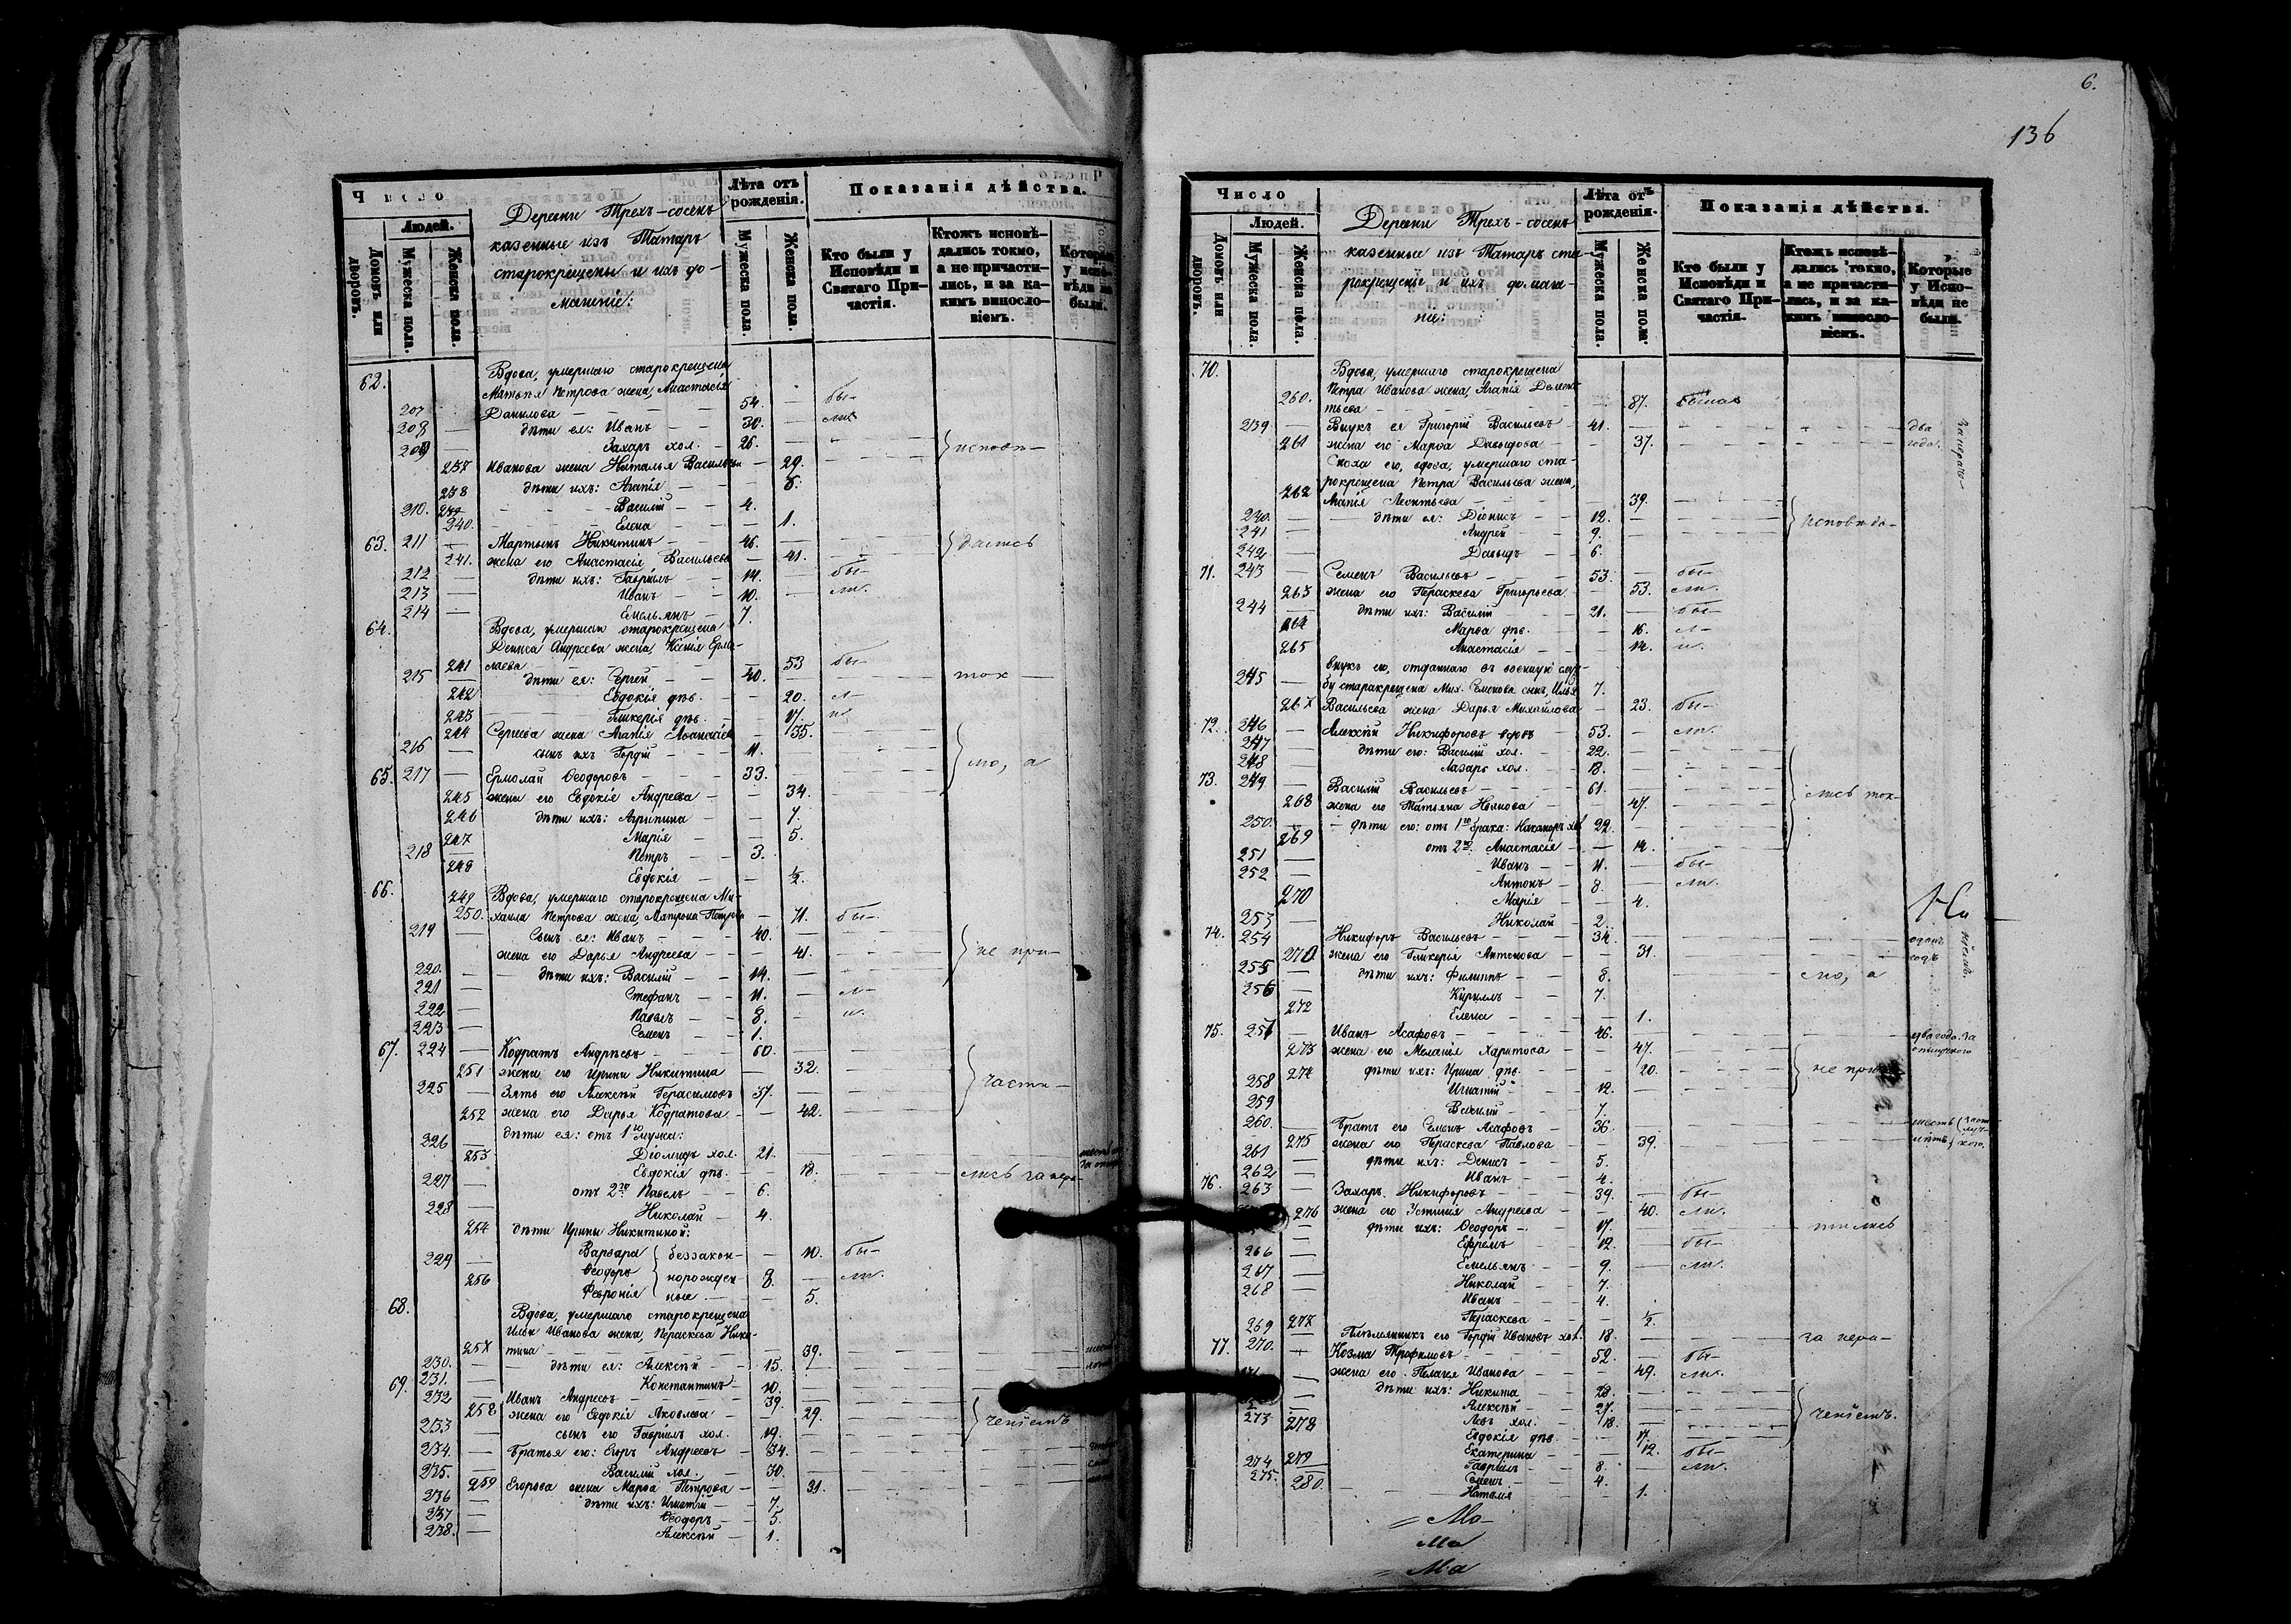 Число
Людей.
Домовъ или дворовъ.
Мужеска пола.
Женска пола.
Деревни Трехъ-сосенъ
казенные изъ Татаръ
старокрещены и ихъ до-
машніе:
Лѣта отъ рожденія.
Мужеска пола.
Женска пола.
Показанія дѣйства.
Кто были у Исповѣди и Святаго Причастія.
Ктожъ исповѣ-дались токмо, а не причасти-лись, и за ка-кимъ винословіемъ.
Которые у испо-вѣди не были.
62. Вдова, умершаго старокрещена
Матвѣя Петрова жена, Анастасія
207 Данилова 54. бы-
208 дѣти ея: Иванъ 30. ли.
209 Захаръ хол. 26. исповѣ-
237 Иванова жена Наталья Васильева 29.
238 дѣти ихъ: Агапія 8.
210. 239 Василій 4.
240. Елена 1.
63. 211 Мартынъ Никитинъ 46. дались
241. жена его Анастасія Васильева 41.
212 дѣти ихъ: Гавріилъ 14. бы-
213 Иванъ 10. ли.
214 Емельянъ 7.
64. Вдова, умершаго старокрещена
Дениса Андреева жена, Ксенія Ермо-
241 лаева 53 бы-
215 дѣти ея: Сергей 40. ток
242 Евдокія дѣв. 20. л-
243 Гликерія дѣв. 17. и.
244 Сергеева жена Агапія Афанасіева 35.
216 сынъ ихъ Гордій 11. мо, а
65. 217 Ермолай Феодоровъ 33.
245 жена его Евдокія Андреева 34.
246 дѣти ихъ: Агрипина 7.
247 Марія 5.
218 Петръ 3.
248 Евдокія ½.
66. 249 Вдова, умершаго старокрещена Ми-
250. хаила Петрова жена, Матрона Петрова 71. бы-
219 Сынъ ея: Иванъ 40.
жена его Дарья Андреева 41. не при-
220. дѣти ихъ: Василій 14.
221 Стефанъ 11. л-
222 Павелъ 8. и.
223 Семенъ 1.
67. 224 Кодратъ Андреевъ 60.
251 жена его Ирина Никитина 32. части-
225 Зять его Алексѣй Герасимовъ 37.
252 жена его Дарья Кодратова 42.
дѣти ея: отъ 1го мужа:
226 253 Діомидъ хол. 21.
Евдокія дѣв. 18. лись за нера-
227 отъ 2го Павелъ 6.
228 Николай 4.
254 дѣти Ирины Никитиной:
Варвара беззакон- 10. бы-
229 Феодоръ норожден- 8. ли.
256 Февронія ные 5.
68. Вдова, умершаго старокрещена
Ильи Иванова жена, Пераскева Ники-
257 тина 39.
230. дѣти ея: Алексѣй 15.
231. Константинъ 10.
69. 232 Иванъ Андреевъ 39.
258 жена его Евдокія Яковлева 29. ченіемъ
233 сынъ его Гавріилъ хол. 19.
234. Братья его: Егоръ Андреевъ 34.
235. Василій хол. 30.
259 Егорова жена Марфа Петрова 31.
236 дѣти ихъ: Игнатій 7.
237 Феодоръ 5.
238. Алексѣй 1.
6.
136
Число
Людей.
Домовъ или дворовъ.
Мужеска пола.
Женска пола.
Деревни Трехъ-сосенъ
казенные изъ Татаръ ста-
рокрещены и ихъ домаш-
ніе:
Лѣта отъ рожденія.
Мужеска пола.
Женска пола.
Показанія дѣйства.
Кто были у Исповѣди и Святаго Причастія.
Ктожъ исповѣ-дались токмо, а не причасти-лись, и за ка-кимъ винословіемъ.
Которые у Испо-вѣди не были.
70. Вдова, умершаго старокрещена
260. Петра Иванова жена, Агапія Демен-
тьева 87. была
239 Внукъ ея Григорій Васильевъ 41. два
261 жена его Марфа Давыдова 37. года.
Сноха его, вдова, умершаго ста-
рокрещена Петра Васильева жена,
262 Агапія Леонтьева 39.
240. дѣти ея: Діонисъ 12. исповѣда-
241 Андрей 9.
242 Давыдъ 6.
71. 243 Семенъ Васильевъ 53. бы-
263 жена его Пераскева Григорьева 53. ли.
244 дѣти ихъ: Василій 21. бы-
264 Марфа дѣв. 16. л-
265 Анастасія 14. и.
внукъ его, отданнаго въ военную служ-
245 бу старокрещена Мих. Семенова сынъ, Илья 7.
267 Васильева жена Дарья Михайлова 23. бы-
72. 246 Алексѣй Никифоровъ вдовъ 53. ли.
247 дѣти его: Василій хол. 22.
248 Лазарь хол. 18.
73. 249 Василій Васильевъ 61. лись ток-
268 жена его Татьяна Иванова 47.
250. дѣти его: отъ 1го брака: Никаноръ хол. 22.
269 отъ 2го. Анастасія 14.
251 Иванъ 11. бы-
252 Антонъ 8. ли.
270 Марія 4.
253 Николай 2.
74. 254 Никифоръ Васильевъ 34. одинъ
270 жена его Гликерія Антонова 31. годъ
255 дѣти ихъ: Филиппъ 8. мо, а
256 Кириллъ 7.
272 Елена 1.
75. 257 Иванъ Асафовъ 46. два года. за
273 жена его Меланія Харитова 47.
274 дѣти ихъ: Ирина дѣв. 20. не при
258 Игнатій 12.
259 Василій 7.
260. Братъ его Семенъ Асафовъ 36. шесть
275 жена его Пераскева Павлова 39. лѣтъ
261 дѣти ихъ: Денисъ 5.
262 Иванъ 4.
76. 263 Захаръ Никифоровъ 39. бы-
276 жена его Устинія Андреева 40. ли.
дѣти ихъ: Феодоръ 17. тились
266 Ефремъ 12. бы-
267 Емельянъ 9. ли.
268 Николай 7.
Иванъ 4.
277 Пераскева ½.
269 Племянникъ его Гордій Ивановъ хол. 18. за нера-
77. 270. Козма Трофимовъ 52. бы-
жена его Пелагея Иванова 49. ли.
дѣти ихъ: Никита 28.
Алексѣй 27.
273 Левъ хол. 18. ченіемъ.
278 Евдокія дѣв. 17.
279 Екатерина 12. бы-
274 Гавріилъ 8. ли.
275. Семенъ 4.
280. Наталія 1.